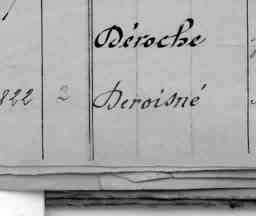 Déroche
1822 2 Deroisné